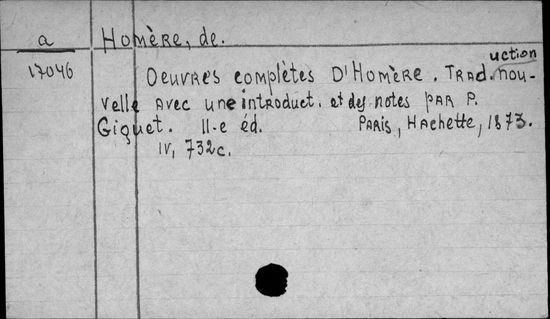 a Homère, de.
17046
Oeuvres complètes D'Homère. Traduction nou-
velle avec une introduct. et des notes par P.
Giguet. 11-e éd. Paris, Hachette, 1873.
IV, 732c.